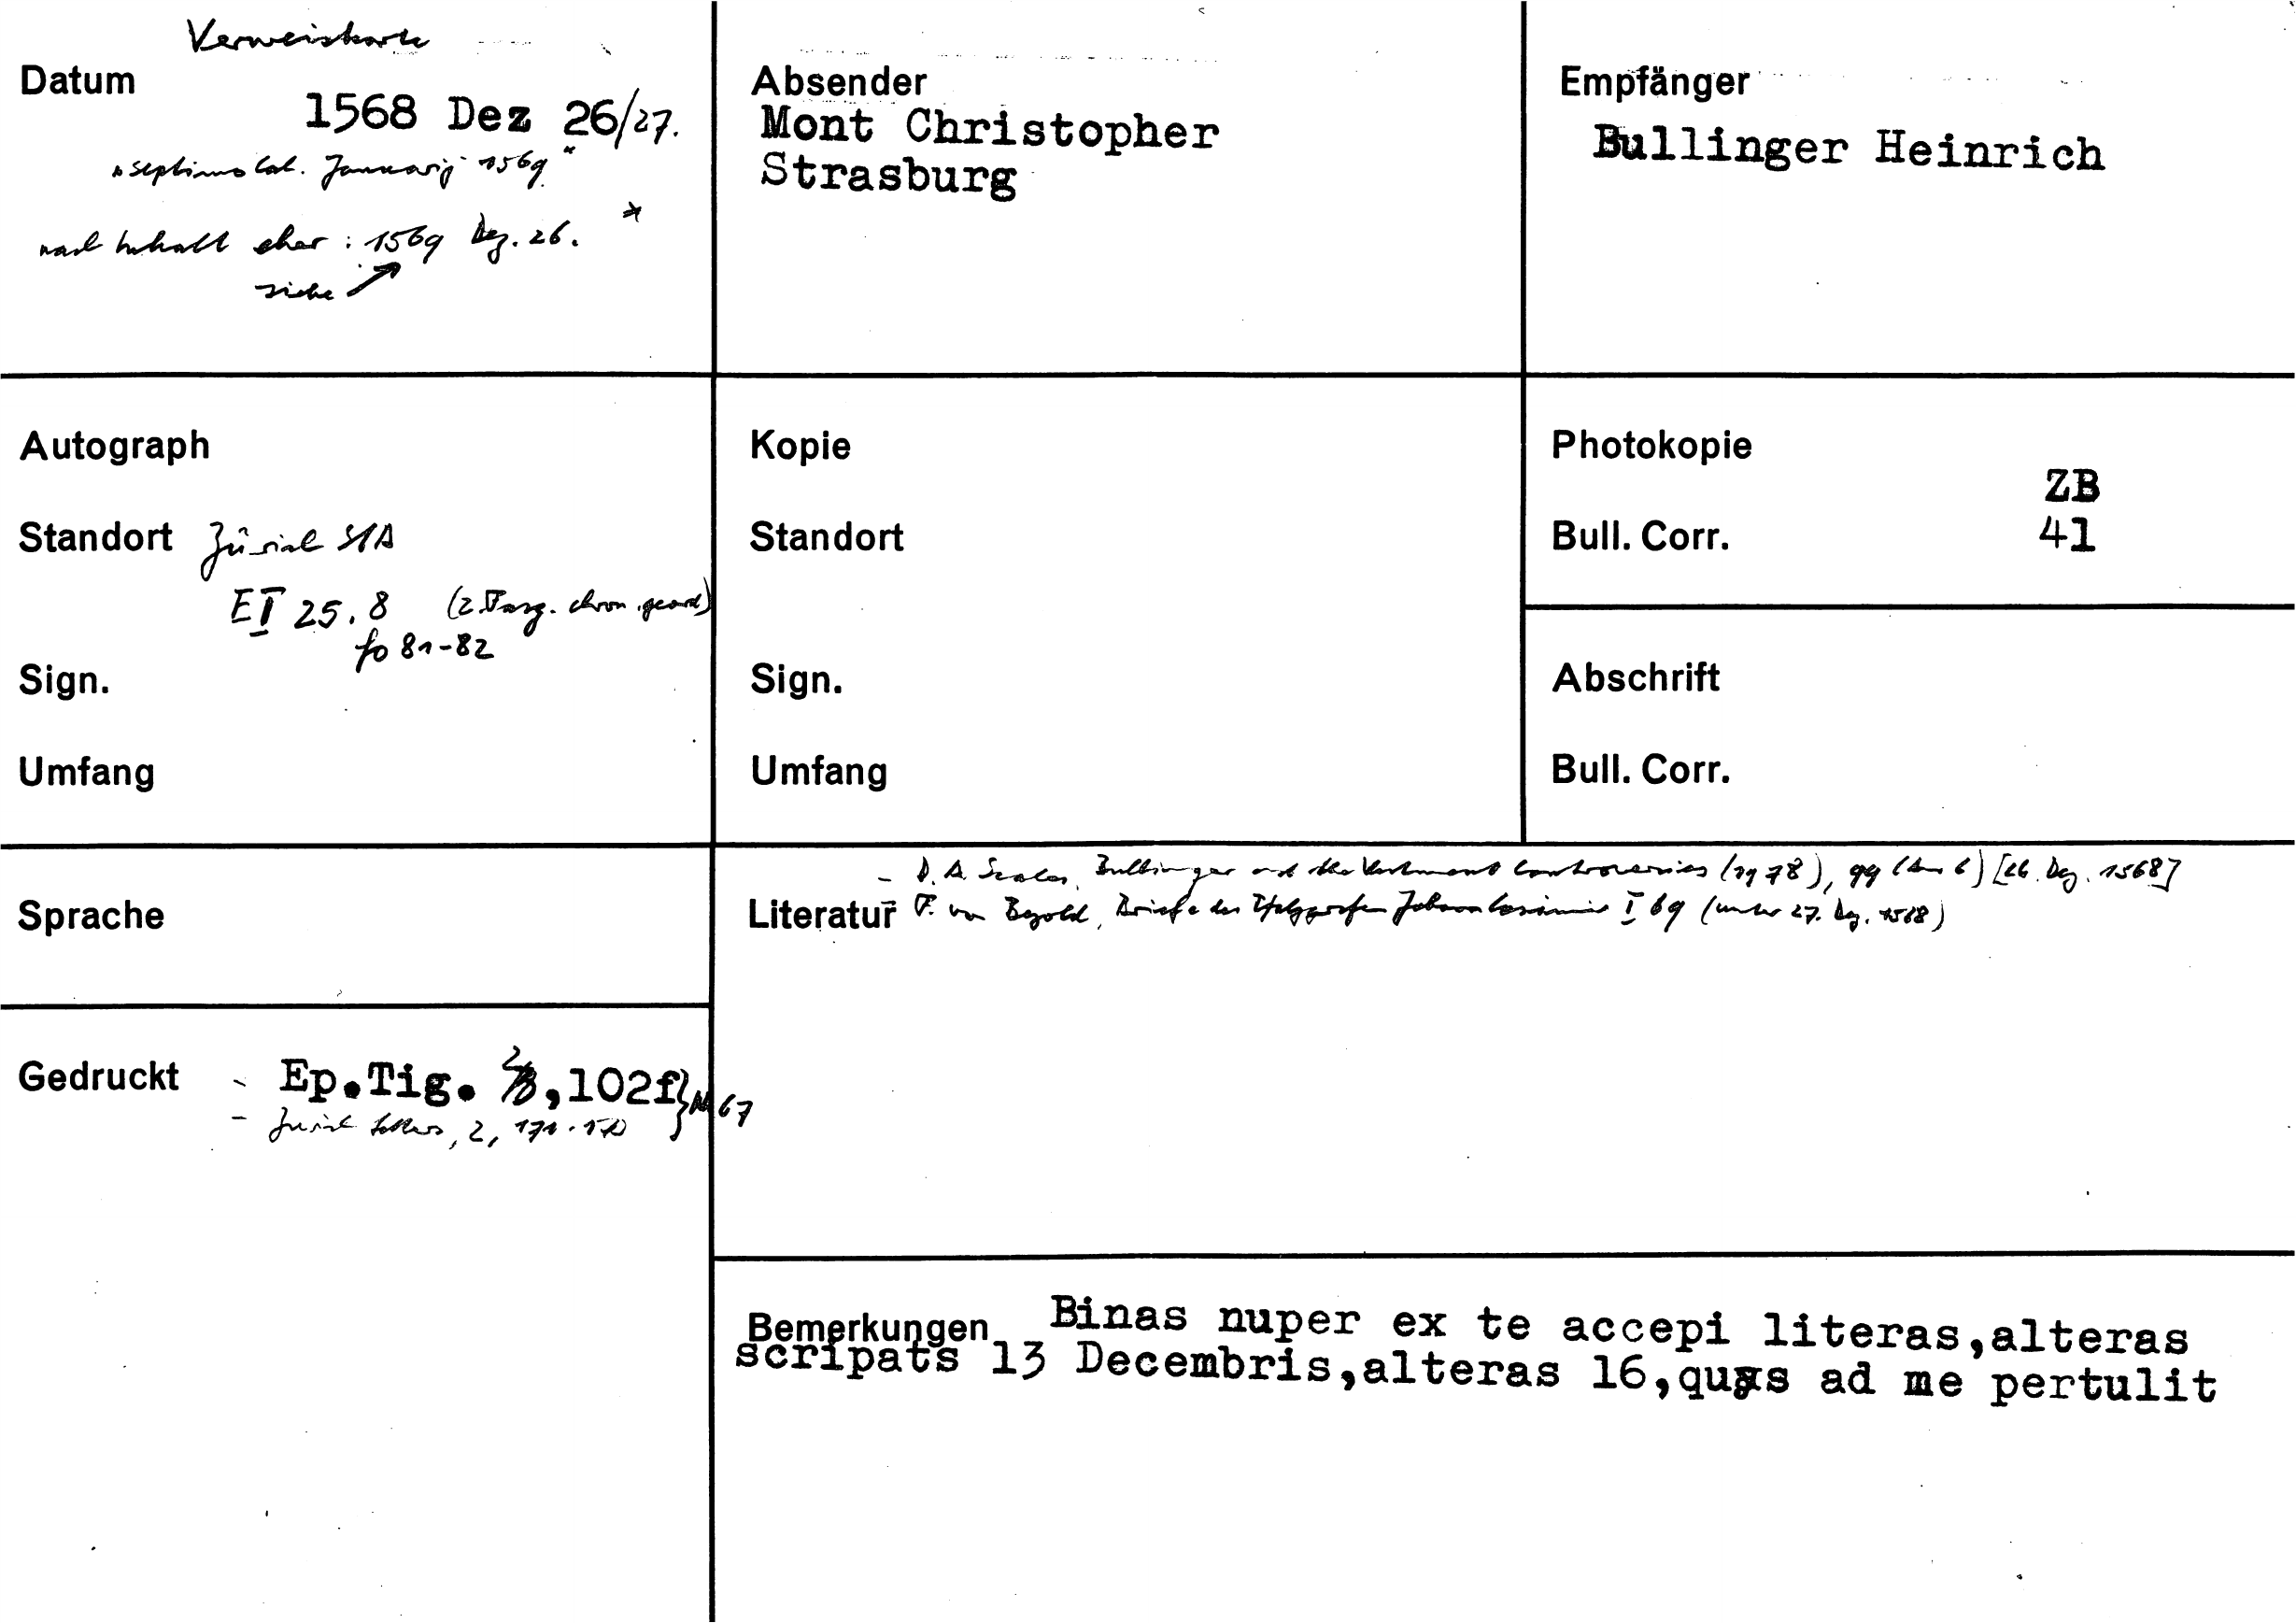 Verweiskarte
Datum
1568 Dez 26/27.
"septimo Cal. Januarij 1569"
nach Inhalt eher : 1569 Dez. 26. *
siehe
Absender
Mont Christopher
Strasburg
Empfänger
Bullinger Heinrich
Autograph
Standort Zürich StA
E II 25. 8 (2. Fasz. chron. geord)
fo 81-82
Sign.
Umfang
Kopie
Standort
Sign.
Umfang
Photokopie
ZB
Bull. Corr. 41
Abschrift
Bull. Corr.
Sprache
Literatur
- D. A. Scales, Bullinger and the Vestment Controversies (1978), 99 (Anm 6) [26. Dez. 1568]
F. von Bezold, Briefe des Pfalzgrafen Johann Casimir I 69 (unter 27. Dez. 1568)
Gedruckt - Ep.Tig. ,102f} Nr 67
- Zurich Letters, 2, 171-172
Bemerkungen Binas nuper ex te accepi literas,alteras
scripats 13 Decembris,alteras 16,quas ad me pertulit